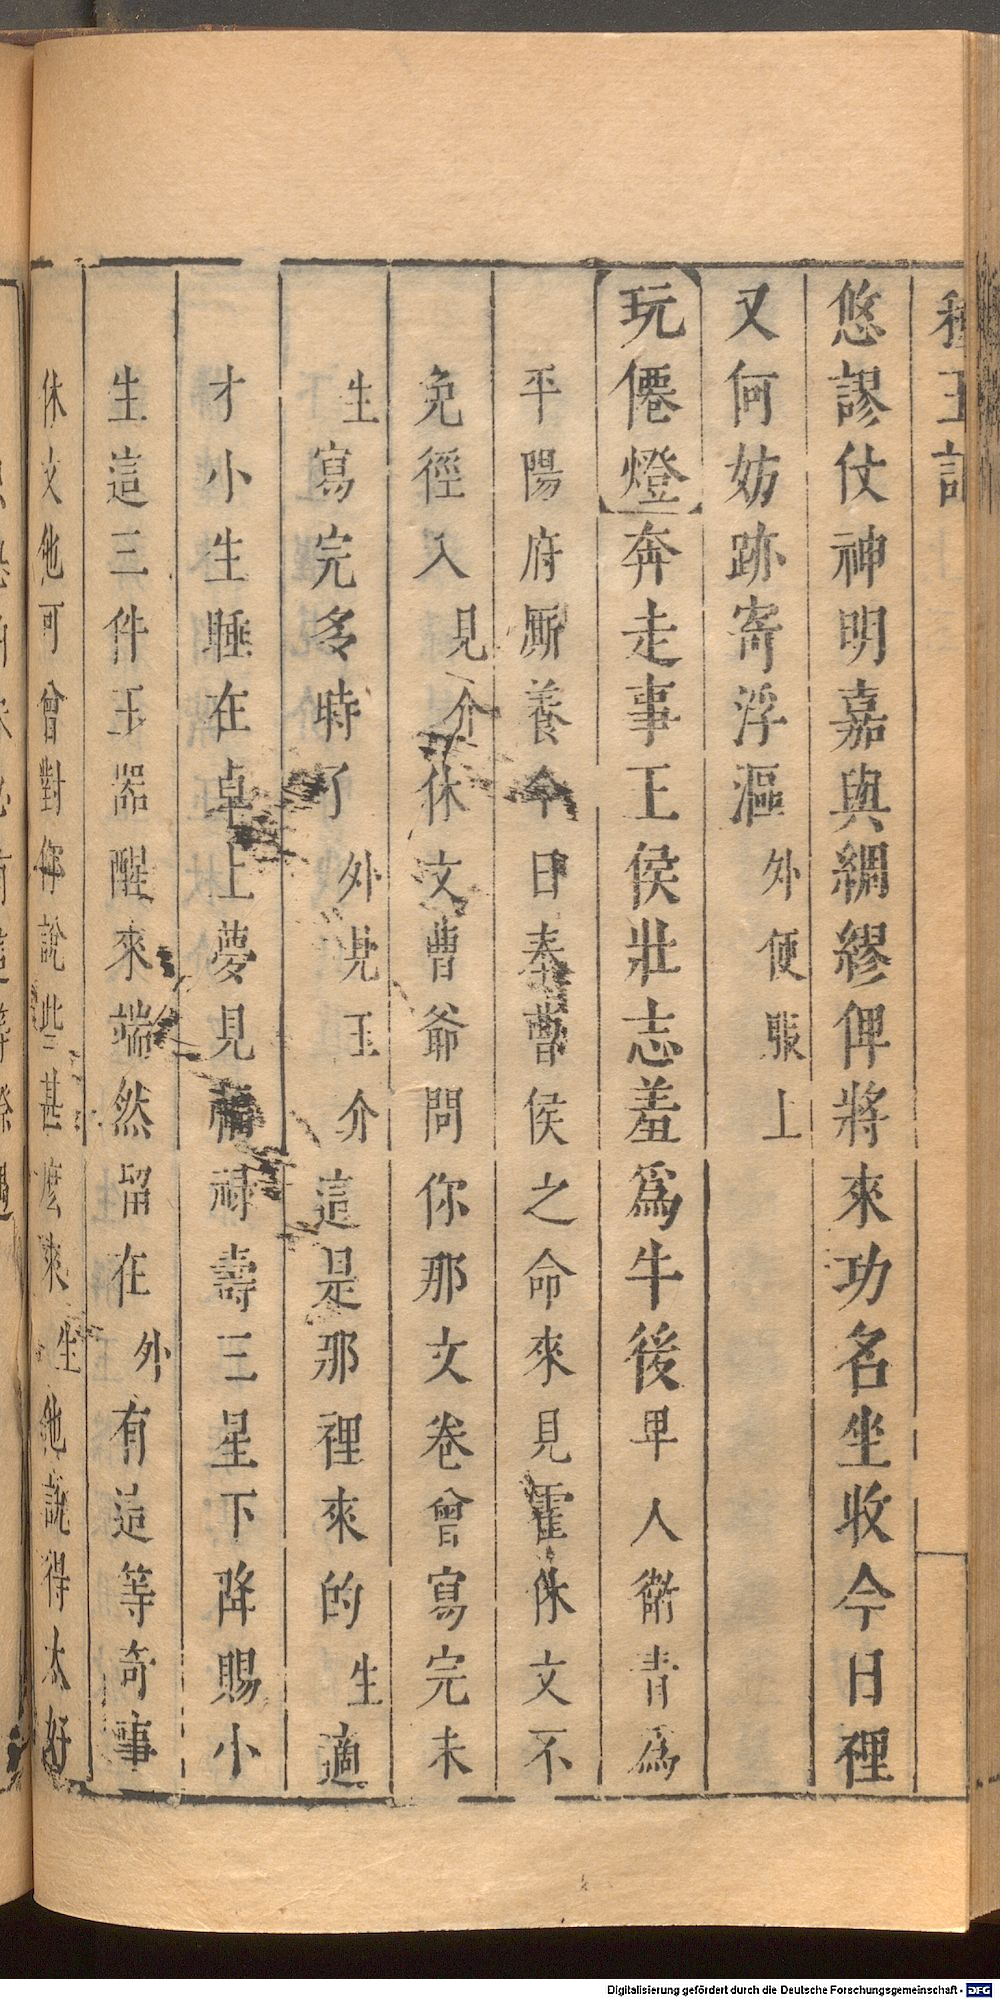 種玉記
悠謬仗神明嘉與綢繆俾將來功名坐收今日裡
又何妨跡寄浮漚外便服上
玩僊燈奔走事王侯壯志羞爲牛後早人衛青爲
平陽府厮養今日奉曹侯之命來見霍休文不
免徑入見介休文曹爺問你那文卷曾寫完未
生寫完多時了外見玉介這是那裡來的生適
才小生睡在卓上夢見福禄壽三星下降賜小
生這三件玉器醒來端然留在外有這等奇事
休文他可曾對你說些甚麽來生他說得太好
Digitalisierung gefördert durch die Deutsche Forschungsgemeinschaft - DFG